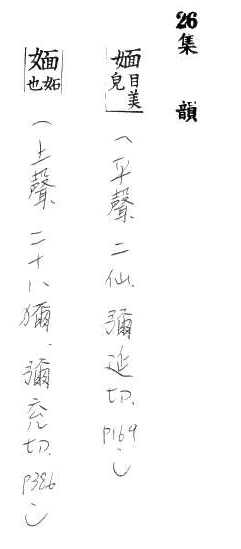 26集韻
婳目美皃(平聲、二仙、彌延切、P169)
婳妬也(上聲、二十八獮、彌兖切、P386)